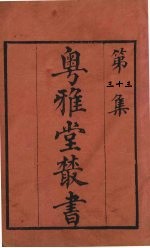 第三十三集
粵雅堂叢書